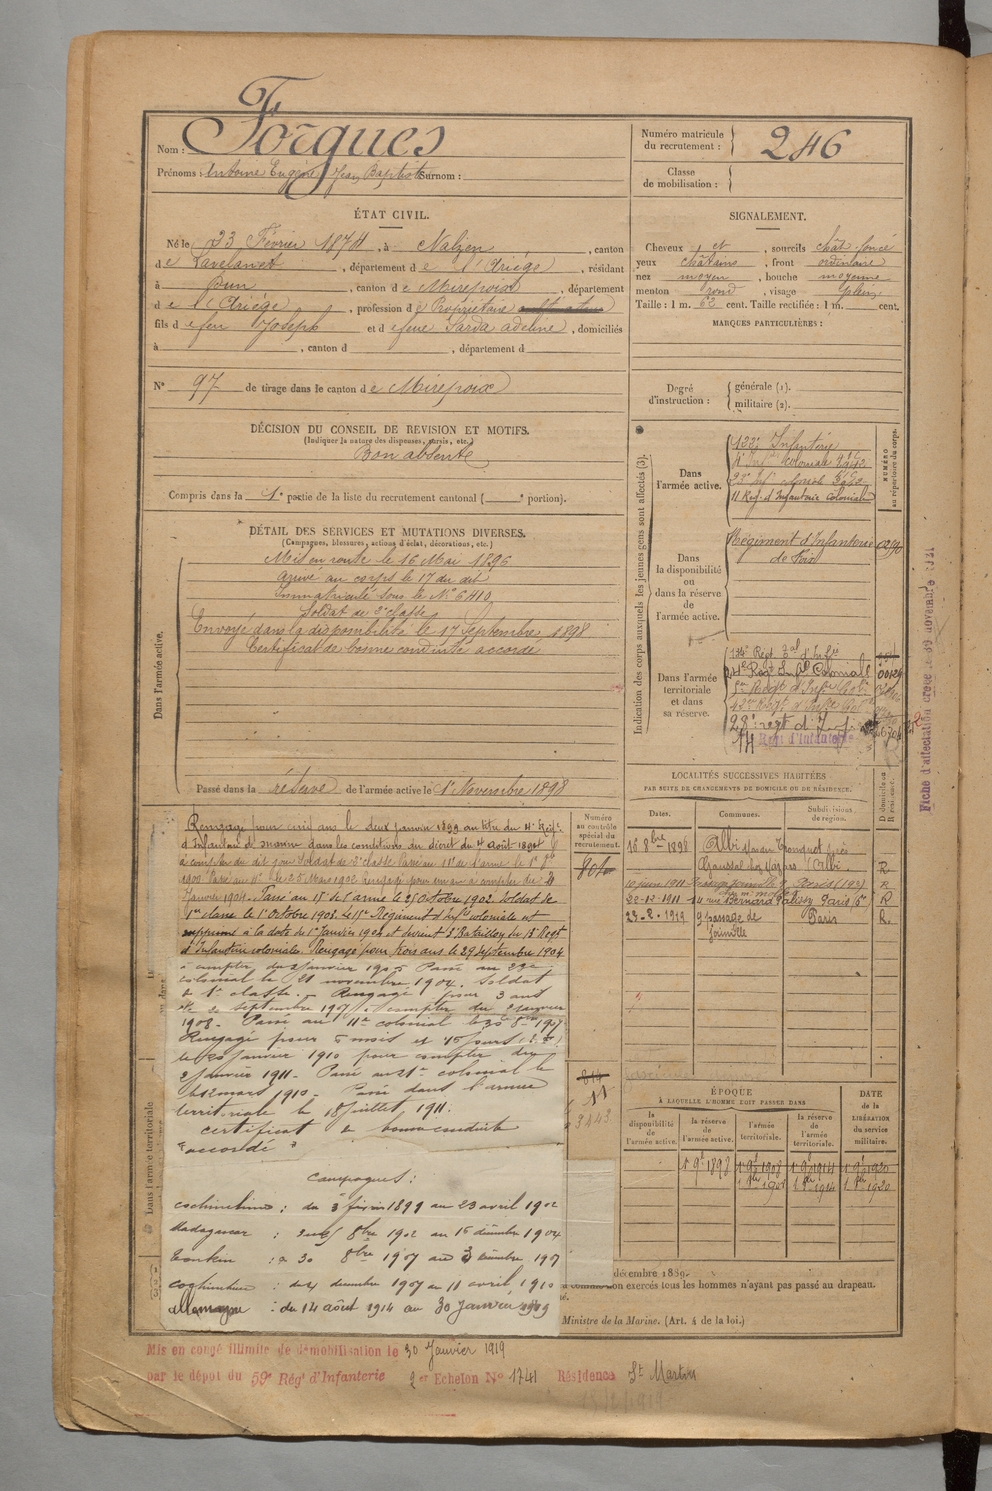 Nom : Forgues
Prénoms : Antoine Eugène Jean Baptiste Surnom :
Numéro matricule du recrutement : 246
Classe de mobilisation :
ÉTAT CIVIL.
Né le 23 Février 1874, à Nalzen, canton
de Lavelanet, département de l'Ariége, résidant
à Dun, canton de Mirepoix, département
de l'Ariége, profession de Propriétaire cultivateur
fils de feu Joseph et de feue Sarda adeline, domiciliés
à , canton d , département d
N° 97 de tirage dans le canton de Mirepoix
SIGNALEMENT.
Cheveux et , sourcils chât. foncé
yeux châtains , front ordinaire
nez moyen , bouche moyenne
menton rond , visage plein
Taille : 1 m. cent. Taille rectifiée : 1 m. cent.
MARQUES PARTICULIÈRES :
Degré d'instruction : générale (1).
militaire (2).
DÉCISION DU CONSEIL DE REVISION ET MOTIFS.
(Indiquer la nature des dispenses, sursis, etc.)
Bon absent
Compris dans la 1e partie de la liste du recrutement cantonal ( e portion).
DÉTAIL DES SERVICES ET MUTATIONS DIVERSES.
(Campagnes, blessures, actions d'éclat, décorations, etc.)
Dans l'armée active.
Mis en route le 16 Mai 1896
arrivé au corps le 17 du dit
Immatriculé sous le N° 6410
Soldat de 2e classe
Envoyé dans la disponibilité le 17 Septembre 1898
Certificat de bonne conduite accordé
Passé dans la réserve de l'armée active le 1er Novembre 1898
Indication des corps auxquels les jeunes gens sont affectés (3).
NUMÉRO au répertoire du corps.
Dans l'armée active.
122e Infanterie
4e Infie coloniale
11 Reg. d'Infanterie Coloniale
Dans la disponibilité ou dans la réserve de l'armée active.
Régiment d'Infanterie
de Foix
Dans l'armée territoriale et dans sa réserve.
28e regt d'Inf.
14 Régt d'Infanterie
Fiche d'affectation
Rengagé pour cinq ans le deux janvier 1899 au titre du 4e Régt
d'Infanterie de marine dans les conditions du décret du 4 août 1894
à compter du dit jour Soldat de 2e classe Passé au 11e de l'arme le
1900 Passé au le 25 Mars 1902 Rengagé pour un an à compter du 2
Janvier 1904. Passé au 15e de l'arme le 25 Octobre 1902. Soldat de
1re classe le 1er Octobre 1903. Le 15e Régiment d'Infie coloniale est
supprimé à la date du 1er Janvier 1904 et devient Bataillon du 13e Régt
d'Infanterie coloniale. Rengagé pour trois ans le 29 septembre 1904
à compter du 2 janvier 1905 Passé au 23e
colonial le 21 novembre 1904. Soldat
de 1e classe. - Rengagé pour 3 ans
le 2 septembre 1907 à compter du 2 Janvier
1908. - Passé au 11e colonial le 30 8bre 1907
Rengagé pour 6 mois et 15 jours
le 20 janvier 1910 pour compter du
2 janvier 1911. - Passé au 21e colonial le
12 mars 1910. - Passé dans l'armée
territoriale le 18 juillet 1911.
certificat de bonne conduite
"accordé"
Campagnes :
cochinchine : du 3 février 1899 au 23 avril 1902
Madagascar : 8bre 1902 au 16 décembre 1904
Tonkin : 30 8bre 1907 au 3 décembre 1907
cochinchine : du 4 décembre 1907 au 11 avril 1910
allemagne : du 14 août 1914 au 30 Janvier 1919
Numéro au contrôle spécial du recrutement.
806
LOCALITÉS SUCCESSIVES HABITÉES
PAR SUITE DE CHANGEMENTS DE DOMICILE OU DE RÉSIDENCE.
Dates. Communes. Subdivisions de région. D domicile ou R résidence.
16 8bre 1898 Albi
(Albi R
10 juin 1911 Paris R
20-12-1911 rue Bernard Palissy Paris (6e) R
23-2-1919 9 passage de Joinville Paris R.
814
ÉPOQUE À LAQUELLE L'HOMME DOIT PASSER DANS
la disponibilité de l'armée active. la réserve de l'armée active. l'armée territoriale. la réserve de l'armée territoriale.
DATE de la LIBÉRATION du service militaire.
1er 9bre 1898 1er 9bre 1908 1er 9bre 1914 1er 9bre 1920
Dans l'armée territoriale
décembre 1889.
exercés tous les hommes n'ayant pas passé au drapeau.
Ministre de la Marine. (Art. 4 de la loi.)
Mis en congé illimité de démobilisation le 30 Janvier 1919
par le dépot du 59e Rég' d'Infanterie 2er Echelon N° 1741 Résidence St Martin